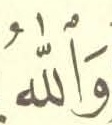 وَٱللَّهُ